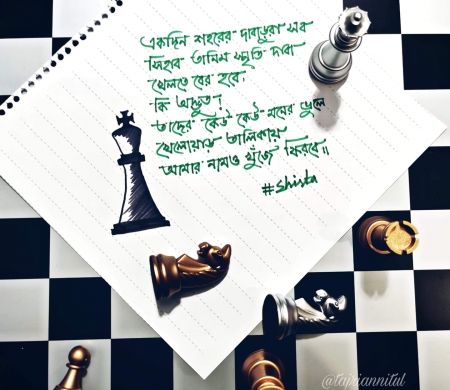 একদিন শহরের দাবাড়ুরা সব
স্মৃতি দাবা
খেলতে বের হবে,
কি অদ্ভুত!
তাদের কেউ কেউ মনের ভুলে
খেলোয়াড় তালিকায়
আমার নামও খুঁজে ফিরবে॥
#Shista
@tapriannitul